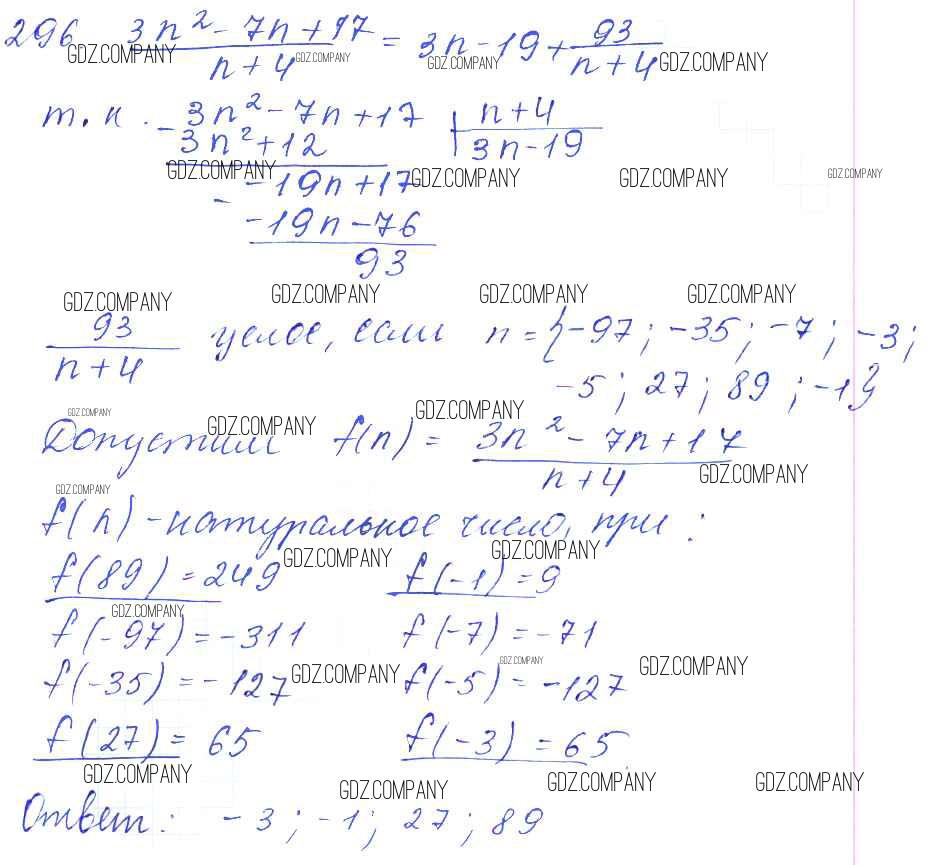 296 (3n² - 7n + 17)/(n + 4) = 3n - 19 + 93/(n + 4)
GDZ.COMPANY GDZ.COMPANY GDZ.COMPANY GDZ.COMPANY
т.к. - 3n² - 7n + 17 | n + 4
3n² + 12 | 3n - 19
GDZ.COMPANY GDZ.COMPANY GDZ.COMPANY GDZ.COMPANY
- -19n + 17
-19n - 76
93
GDZ.COMPANY GDZ.COMPANY GDZ.COMPANY GDZ.COMPANY
93/(n + 4) целое, если n = {-97; -35; -7; -3;
-5; 27; 89; -1}
GDZ.COMPANY GDZ.COMPANY GDZ.COMPANY
Допустим f(n) = (3n² - 7n + 17)/(n + 4)
GDZ.COMPANY GDZ.COMPANY
f(n) - натуральное число, при:
GDZ.COMPANY GDZ.COMPANY
f(89) = 249 f(-1) = 9
GDZ.COMPANY
f(-97) = -311 f(-7) = -71
GDZ.COMPANY GDZ.COMPANY GDZ.COMPANY
f(-35) = -127 f(-5) = -127
f(27) = 65 f(-3) = 65
GDZ.COMPANY GDZ.COMPANY GDZ.COMPANY GDZ.COMPANY
Ответ: -3; -1; 27; 89